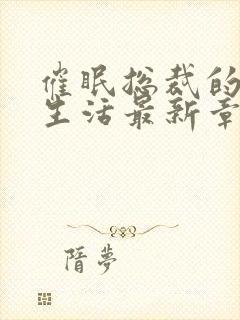 催眠总裁的
生活最新章
隋梦